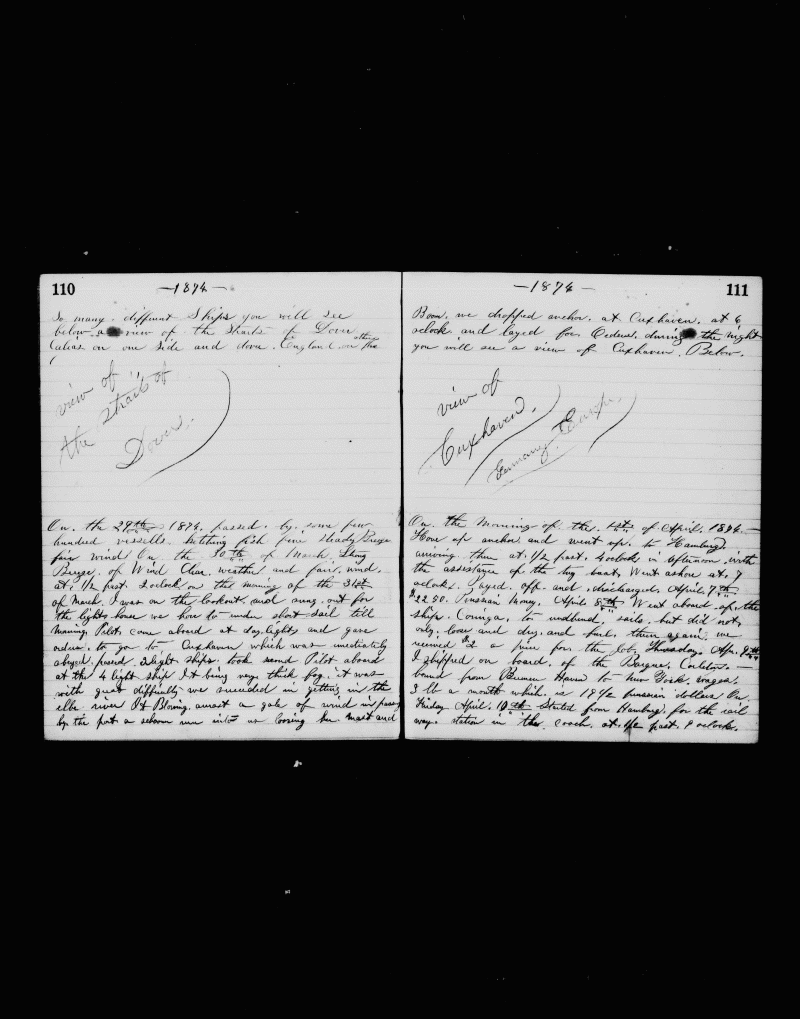 110
—1874—
So many diffrent Ships you will see
below a view of the Straits of Dover
Calias on one side and dover England on the
other
view of
the Strait of
Dover.
On. the 29th 1874. passed. by. some few
hundred vissells. ketching fish fine steady Breze
fair wind On the 30th of March Strong
Breeze. of Wind Clear. weather and fair. wind.
at. 1/2 past. 2 oclock on the morning of the 31st
of March. I was on the lookout. and sung. out for
the lights house we hove to under short sail till
morning Pilot. came aboard at day. lights and gave
orders. to go to Cuxhaven which was imediately
abeyed. passed. 3 light ships. took secound Pilot aboard
at the 4 light ship It being very. thick fog. it was
with great difficulty we suceeded in getting in the
elbe river It Blowing. amost a gale of wind in passing
by the port a schooner run into us loosing her mast and
—1874—
111
Boom. we dropped anchor. at Cuxhaven. at 6
oclock. and layed for Orders. during the night
you will see a view of Cuxhaven. Below.
view of
Cuxhaven.
Germany. Europe.
On. the Morning of the. 1st of April. 1874.—
Hove up anchor and went up. to Hamburg.
arriving there at. 1/2 past. 4 oclock in afternoon. with
the assistance of the tug boat. Went ashore at. 7
oclock. Payed. off. and discharged. April. 7th
$22.50. Prussian Money. April 8th Went aboard of. the
ship. to unbend. sails. but did not.
only. lose and dry. and furl. them again. we
recieved $2 a piece for. the Job. Thursday. Apr. 9th
I shipped on board. of the Barque.—
bound from Bremen Haven to New York. wages.
3 lb a month which. is 18 1/2 prussian dollars On.
Friday April. 10th Stated from Hamburg. for the rail
way. station in the. coach. at. 1/2 past. 9 oclock.